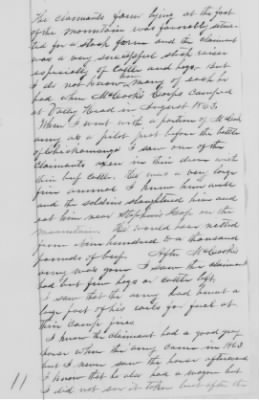 The claimants farm lying at the foot
of the mountain was favorably situa-
ted for a stock farm and the claimant
was a very successful stock raiser
especially of cattle and hogs. But
I do not know how many of each he
had when McCooks Corps camped
at Valley Head in August 1863.
When I went with a portion of McCooks
army as a pilot just before the battle
of Chickamauga I saw one of the
claimants oxen in their drove with
their beef cattle. He was a very large
fine animal I knew him well
and the soldiers slaughtered him and
eat him near Stephens Gap on the
mountain. He would have netted
from nine hundred to a thousand
pounds of beef. After McCooks
army was gone I saw the claimant
had but few hogs or cattle left.
I saw that the army had burnt a
large part of his rails for fuel at
their Camp fires.
I know the claimant had a good gray
horse when the army came in 1863
but I never saw the horse afterward
I know that he also had a wagon but
I did not see it taken but after the
11